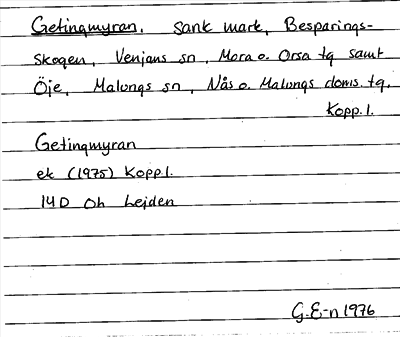 Getingmyran, sank mark, Besparings-
skogen, Venjans sn, Mora o. Orsa tg samt
Öje, Malungs sn, Nås o. Malungs doms. tg,
Kopp.l.
Getingmyran
ek (1975) Kopp.l.
14D Oh Lejden
G.E-n 1976